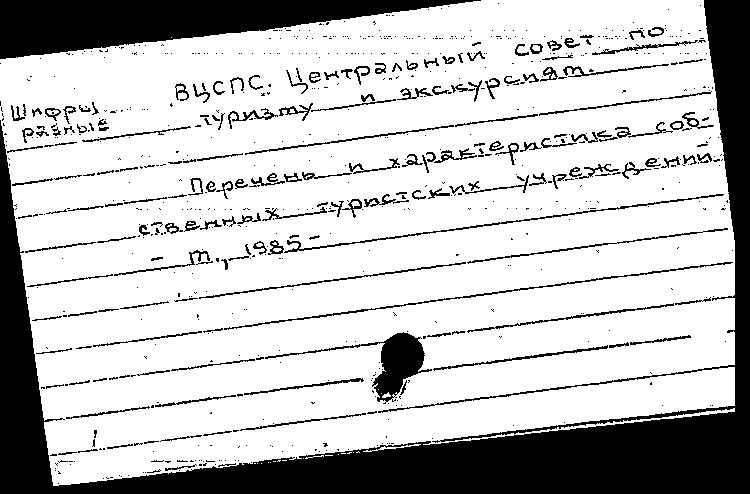 Шифры разные
ВЦСПС. Центральный совет по
туризму и экскурсиям.
Перечень и характеристика соб-
ственных туристских учреждений.
- М., 1985 -
1